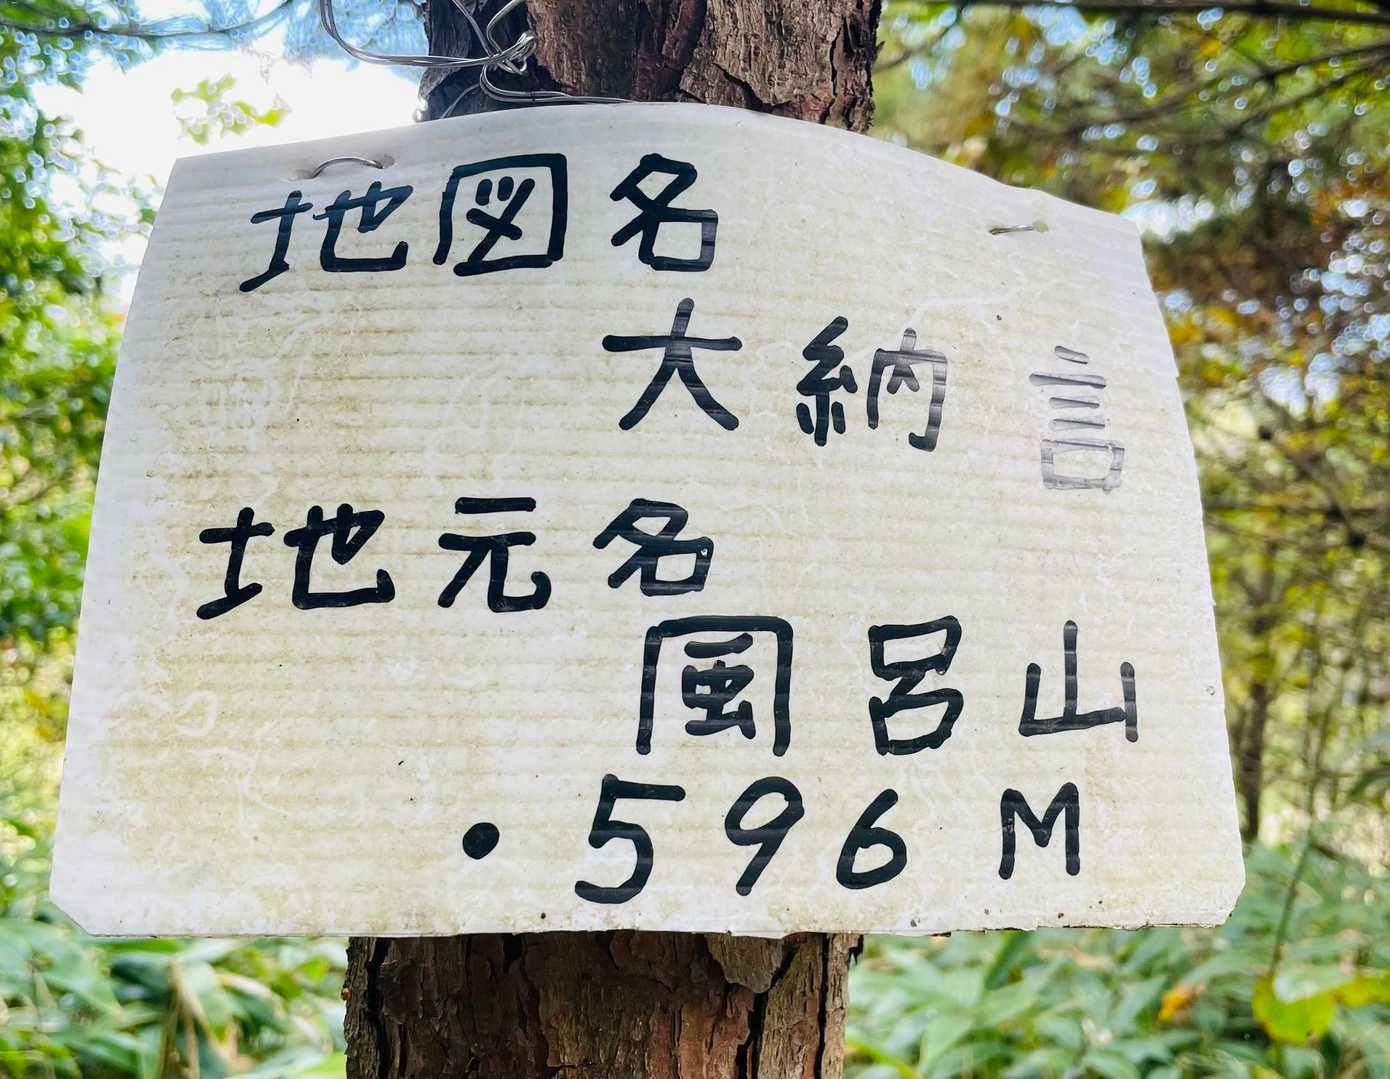 地図名
大納言
地元名
風呂山
・596M